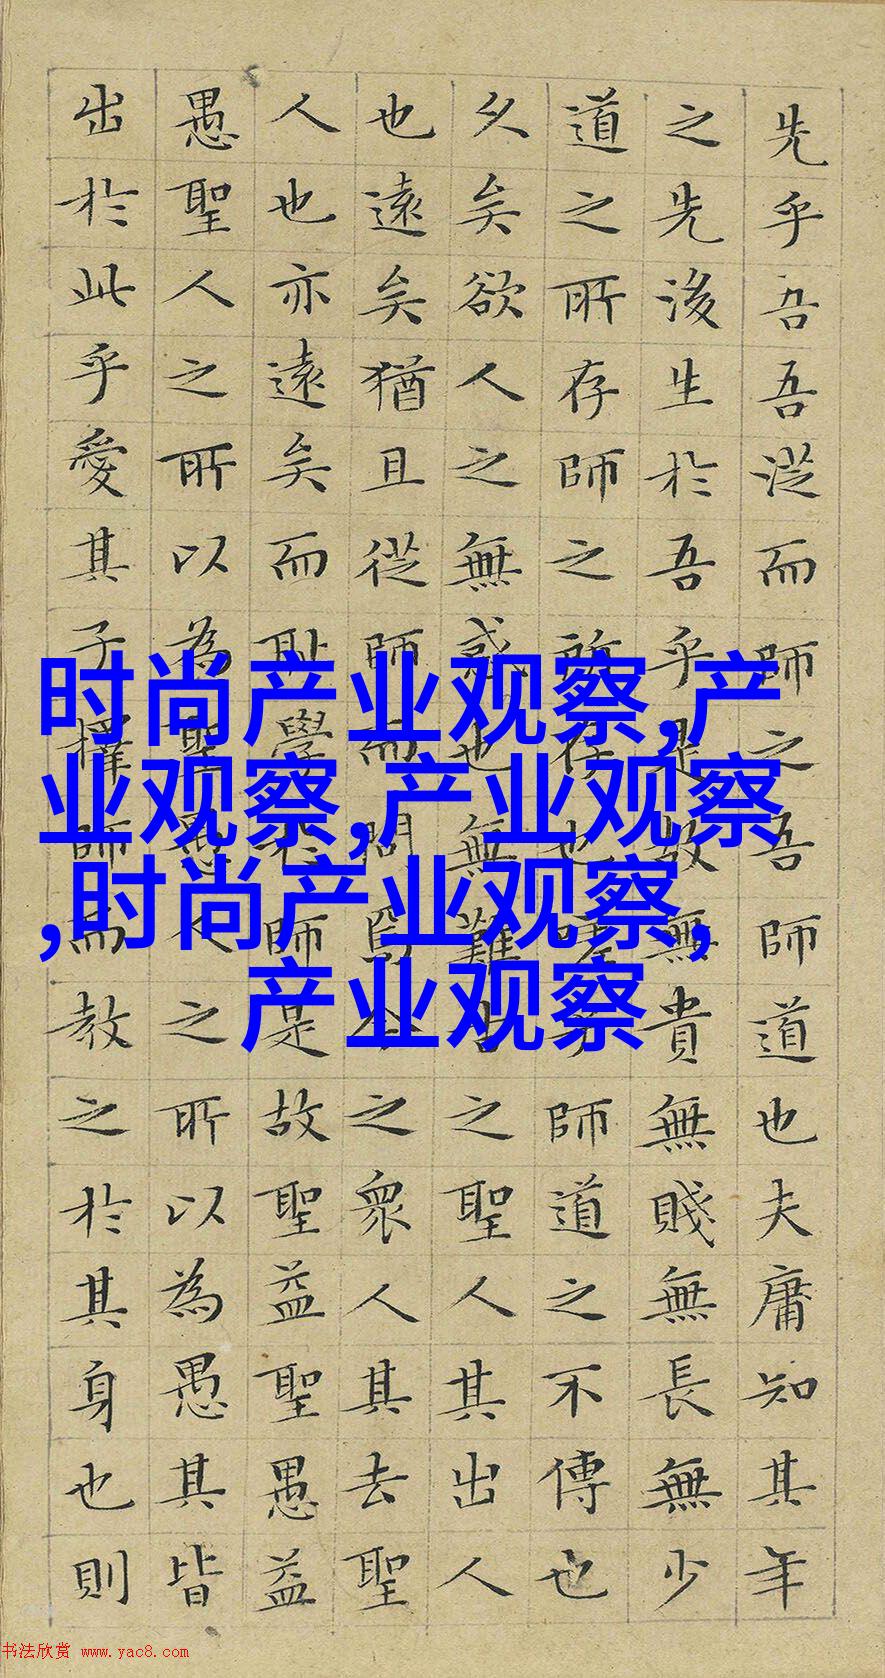 先乎吾吾從而師之吾師道也夫庸知其年
之先後生於吾乎是故無貴無賤無長無少
道之所存師之所存也嗟乎師道之不傳也
久矣欲人之無惑也無難古之聖人其出人
也遠矣猶且從師而問焉今之衆人其去聖
人也亦遠矣而耻學於師是故聖益聖愚益
愚聖人之所以為聖愚人之所以為愚其皆
出於此乎愛其子擇師而教之於其身也則
时尚产业观察,产
业观察,产业观察
,时尚产业观察,
产业观察
书法欣赏 www.yac8.com